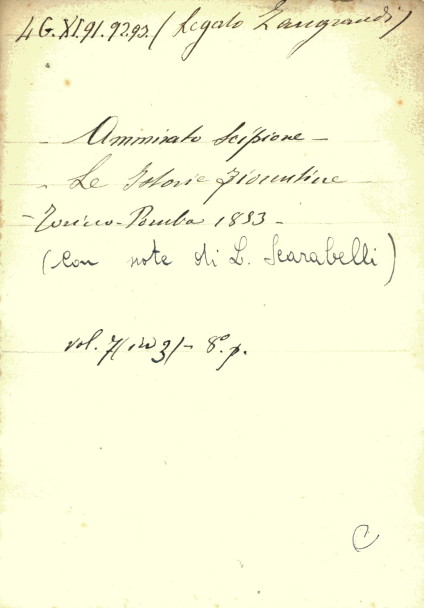 4 G. XI. 91. 92. 93. (Legato Zangrandi)
Ammirato Scipione -
- Le Istorie Fiorentine
- Torino - Pomba 1853 -
(con note di L. Scarabelli)
vol. 7 (in 3) - 8º. p.
C